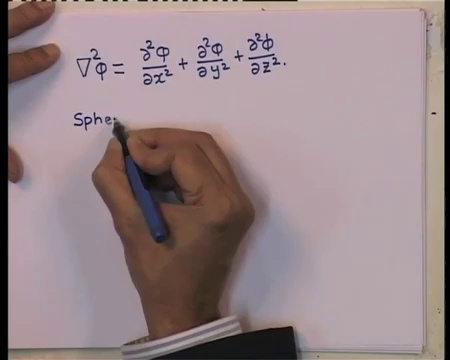 ∇²φ = ∂²φ/∂x² + ∂²φ/∂y² + ∂²φ/∂z².
Sphe